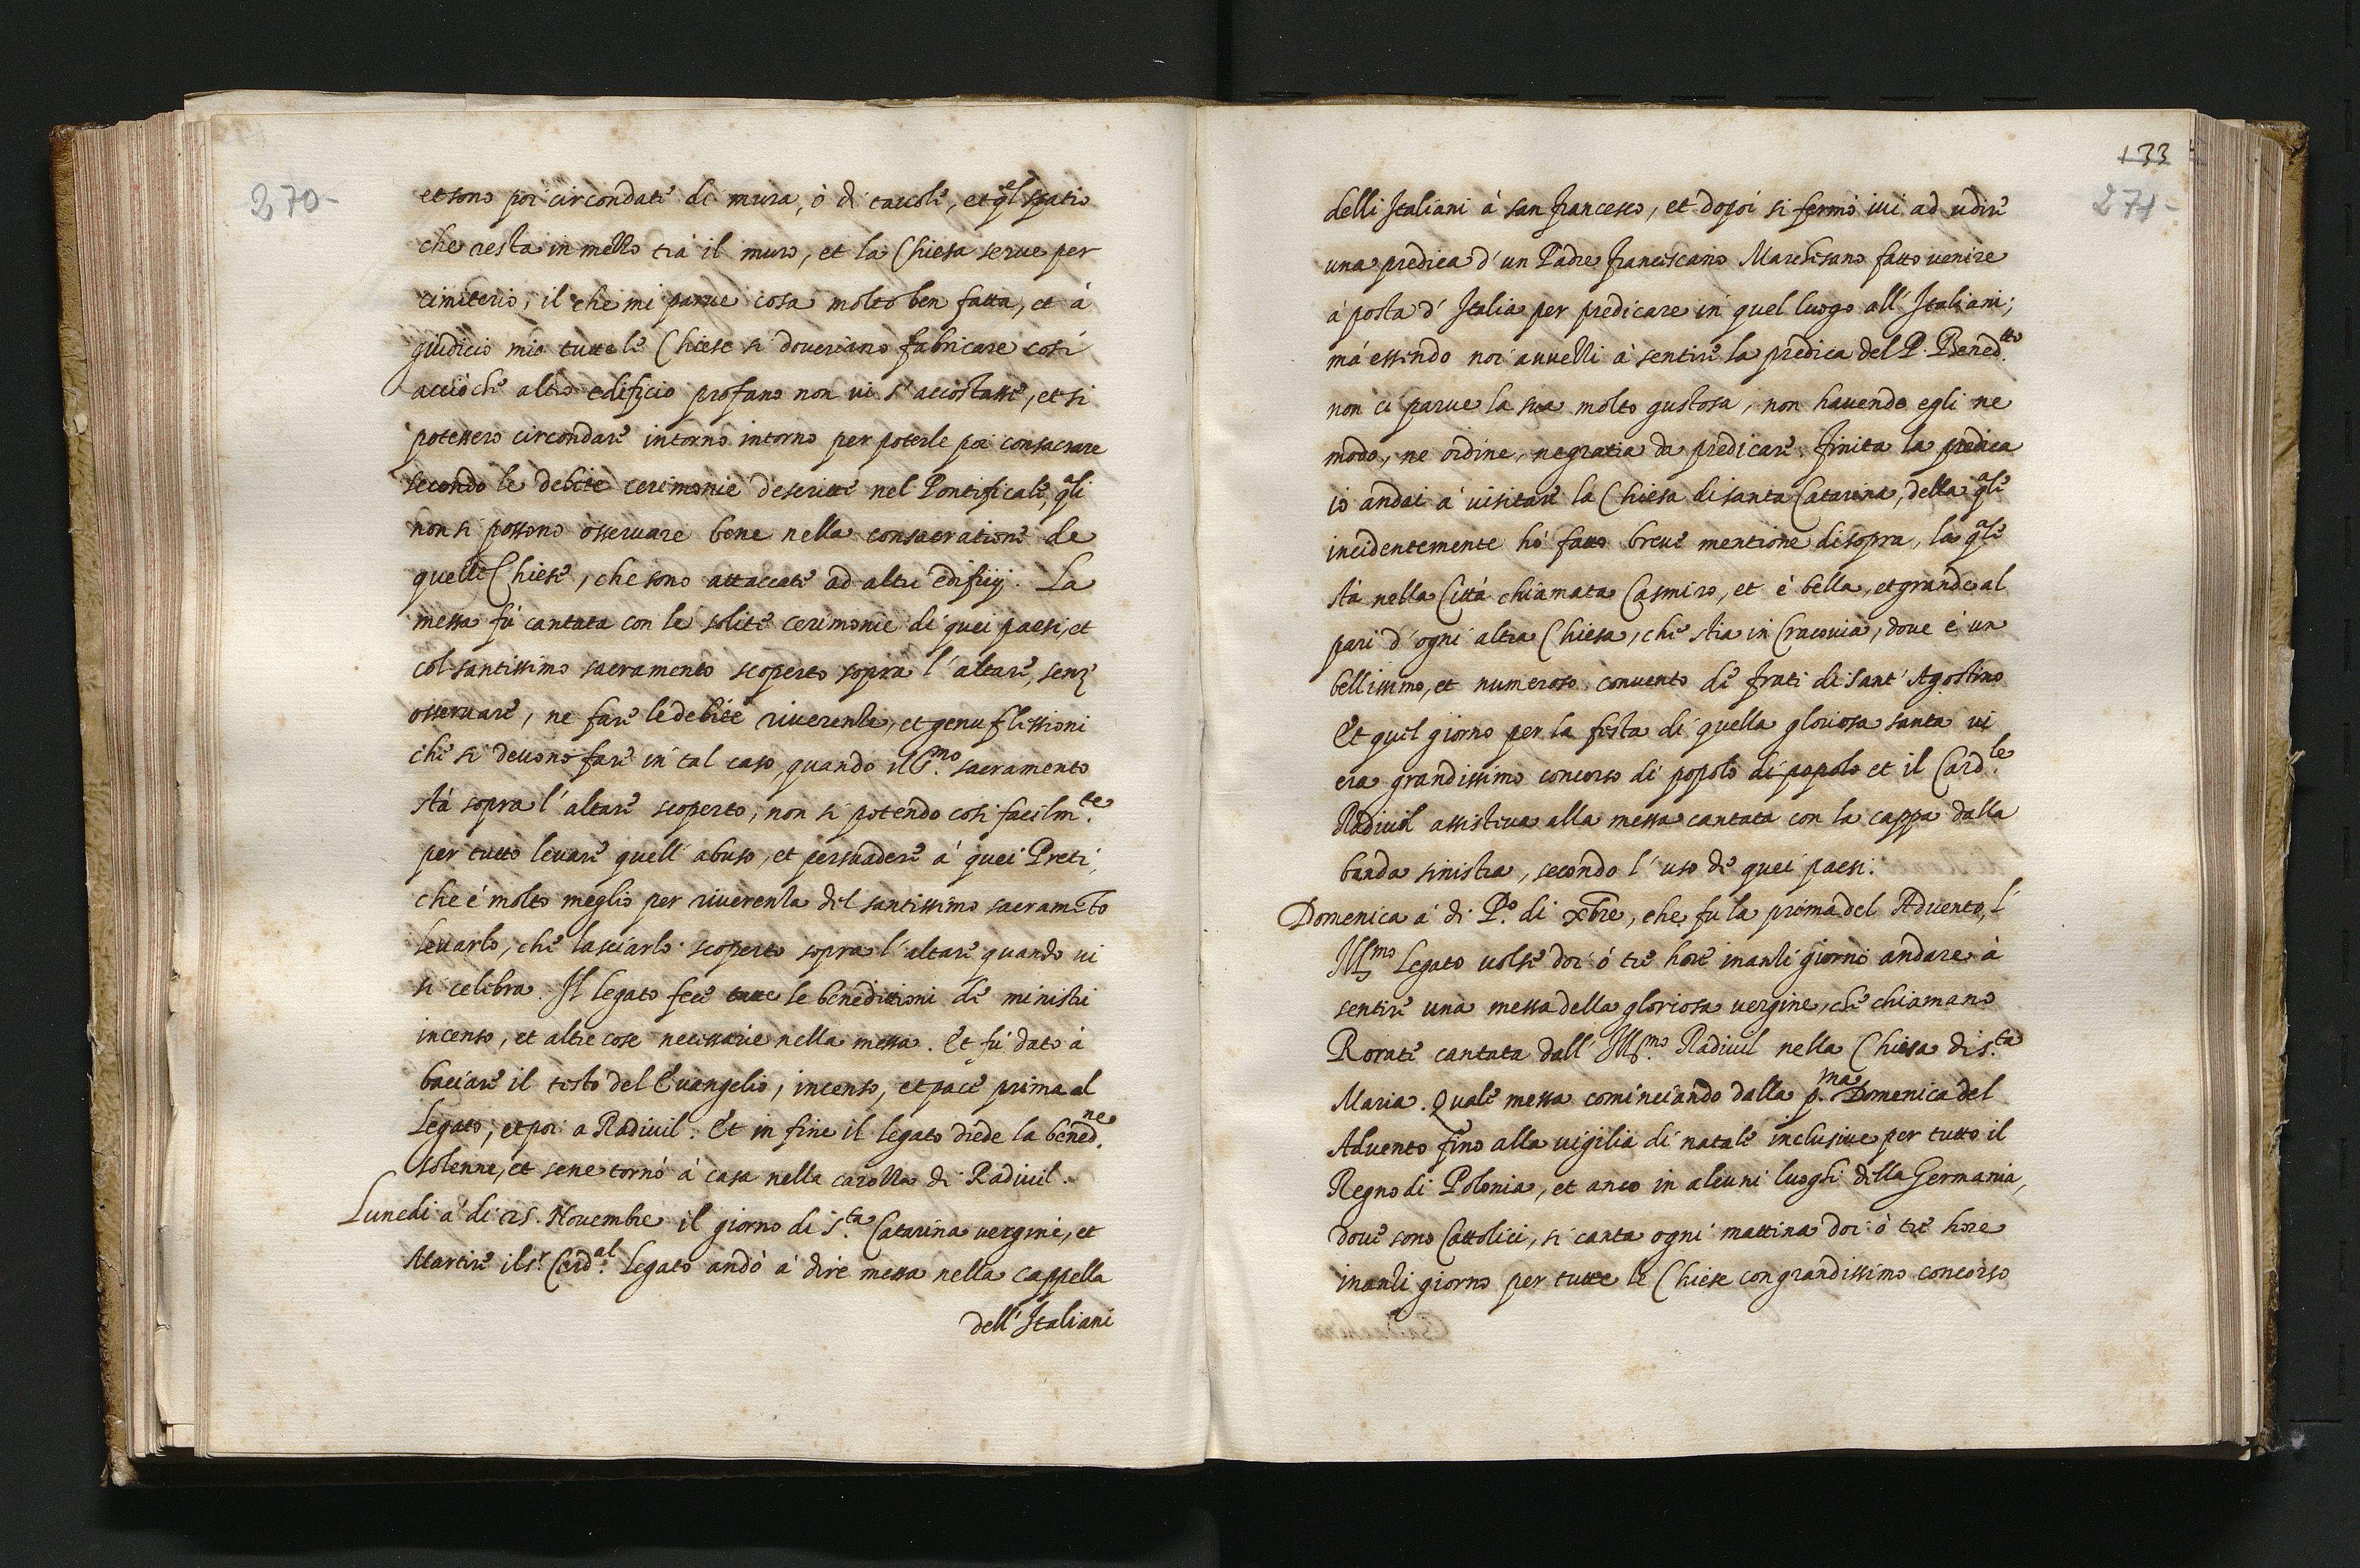 270-
et sono poi circondate di mura, ò di tavole, et q̃l spatio
che resta in mezzo trà il muro, et la Chiesa serue per
cimiterio, il che mi parue cosa molto ben fatta, et à
giudicio mio tutte le Chiese si doueriano fabricare così
acciò che altro edificio profano non vi s'accostasse, et si
potessero circondare intorno intorno per poterle poi consacrare
secondo le debite cerimonie descritte nel Pontificale, q̃li
non si possono osseruare bene nella consacratione de
quelle Chiese, che sono attaccate ad altri edificij. La
messa fù cantata con le solite cerimonie di quei paesi, et
col santissimo sacramento scoperto sopra l'altare, senz
osseruare, ne fare le debite riuerenze, et genuflessioni
che si deuono fare in tal caso, quando il S.mo sacramento
stà sopra l'altare scoperto, non si potendo così facilm.te
per tutto leuare quell'abuso, et persuadere à quei Preti,
che è molto meglio per riuerenza del santissimo sacramẽto
leuarlo, che lasciarlo scoperto sopra l'altare quando vi
si celebra. Il legato fece tutte le benedittioni de ministri
incenso, et altre cose necessarie nella messa. Et fù dato à
baciare il testo del Euangelio, incenso, et pace prima al
Legato, et poi a Radiuil. Et in fine il legato diede la bened.ne
solenne, et se ne tornò à casa nella carozza di Radiuil.
Lunedi à di 25. Nouembre il giorno di s.ta Catarina vergine, et
Martire il s.r Card.al Legato andò à dire messa nella cappella
dell'Italiani
133
271-
delli Italiani à san Francesco, et dopoi si fermò iui ad udire
una predica d'un Padre Franciscano Marchisano fatto venire
à posta d'Italia per predicare in quel luogo all'Italiani;
mà essendo noi auuezzi à sentire la predica del P. Bened.tto
non ci parue la sua molto gustosa, non hauendo egli ne
modo, ne ordine, ne gratia da predicare. Finita la predica
io andai à visitare la Chiesa di santa Catarina, della q̃le
incidentemente hò fatto breue mentione di sopra, la q̃le
stà nella Città chiamata Casmiro, et è bella, et grande al
pari d'ogni altra Chiesa, che stia in Cracouia, doue è un
bellissimo, et numeroso conuento de frati di sant'Agostino
Et quel giorno per la festa di quella gloriosa santa vi
era grandissimo concorso di popolo di popolo et il Card.le
Radiuil assisteua alla messa cantata con la cappa dalla
banda sinistra, secondo l'uso de quei paesi.
Domenica à di P.o di xbre, che fu la prima del Aduento, l'
Ill.mo Legato uolse doi ò tre hore inanzi giorno andare à
sentire una messa della gloriosa vergine, che chiamano
Rorate cantata dall'Ill.mo Radiuil nella Chiesa di s.ta
Maria. Quale messa cominciando dalla p.ma Domenica del
Aduento fino alla uigilia di natale inclusiue per tutto il
Regno di Polonia, et anco in alcuni luoghi della Germania,
doue sono Cattolici, si canta ogni mattina doi ò tre hore
inanzi giorno per tutte le Chiese con grandissimo concorso